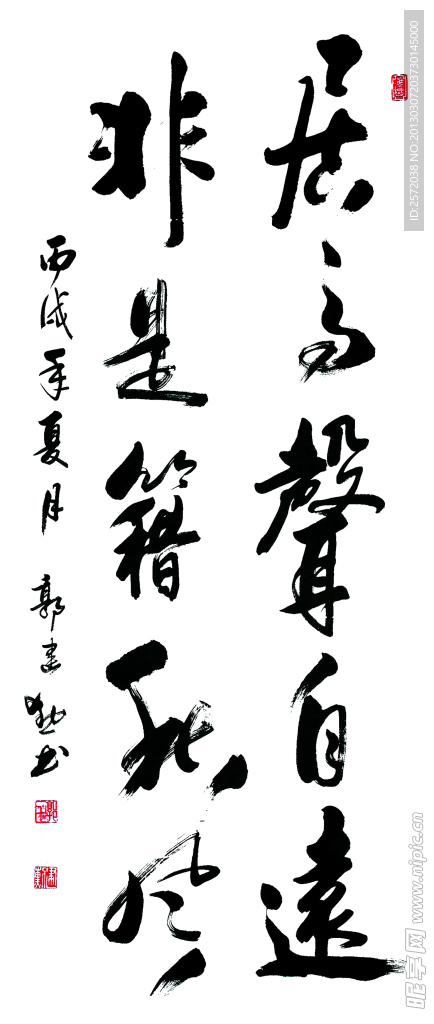 居高聲自遠
非是籍秋风
丙戌年夏月 郭建勳书
ID:2572038 NO:20130307203730145000
昵图网 www.nipic.cn